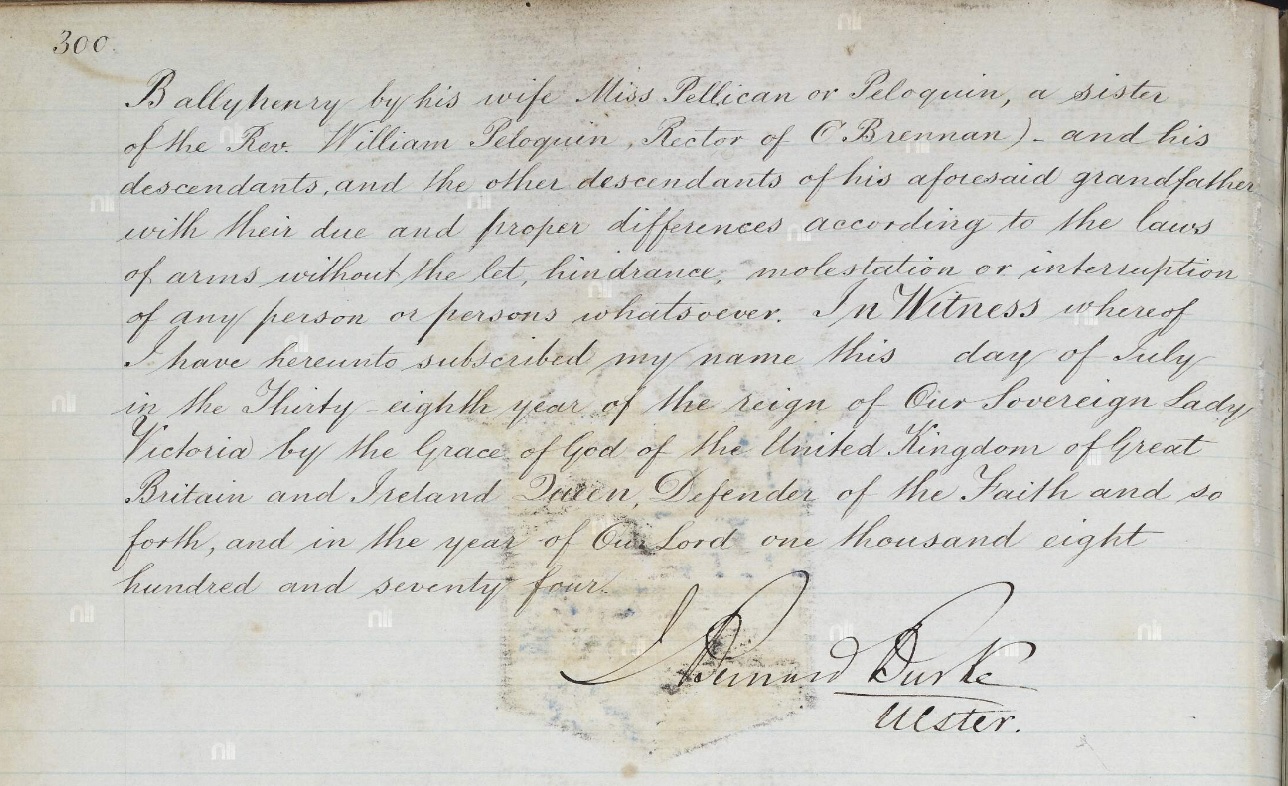 300.
Ballyhenry by his wife Miss Pellican or Peloquin, a sister
of the Rev. William Peloquin, Rector of O'Brennan) - and his
descendants, and the other descendants of his aforesaid grandfather
with their due and proper differences according to the laws
of arms without the let, hindrance, molestation or interruption
of any person or persons whatsoever. In Witness whereof
I have hereunto subscribed my name this day of July
in the Thirty-eighth year of the reign of Our Sovereign Lady
Victoria by the Grace of God of the United Kingdom of Great
Britain and Ireland Queen, Defender of the Faith and so
forth, and in the year of Our Lord one thousand eight
hundred and seventy four.
J Bernard Burke
Ulster.